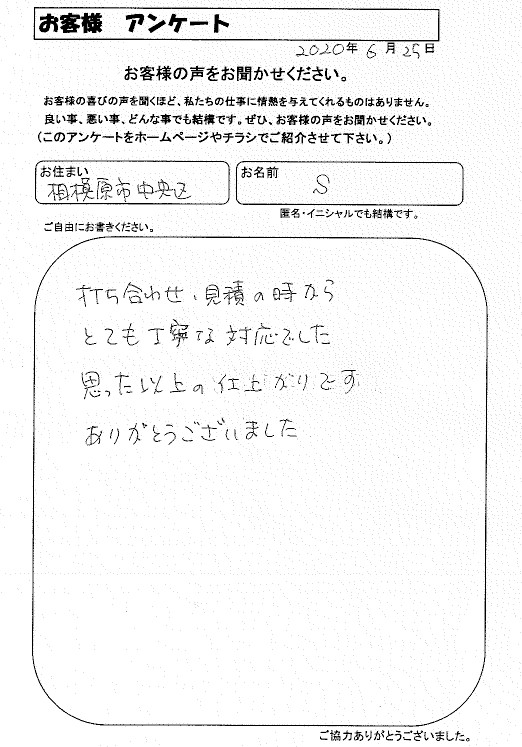 お客様 アンケート
2020年 6月25日
お客様の声をお聞かせください。
お客様の喜びの声を聞くほど、私たちの仕事に情熱を与えてくれるものはありません。
良い事、悪い事、どんな事でも結構です。ぜひ、お客様の声をお聞かせください。
（このアンケートをホームページやチラシでご紹介させて下さい。）
お住まい
相模原市中央区
お名前
S
匿名・イニシャルでも結構です。
ご自由にお書きください。
打ち合わせ、見積の時から
とても丁寧な対応でした
思った以上の仕上がりです
ありがとうございました
ご協力ありがとうございました。